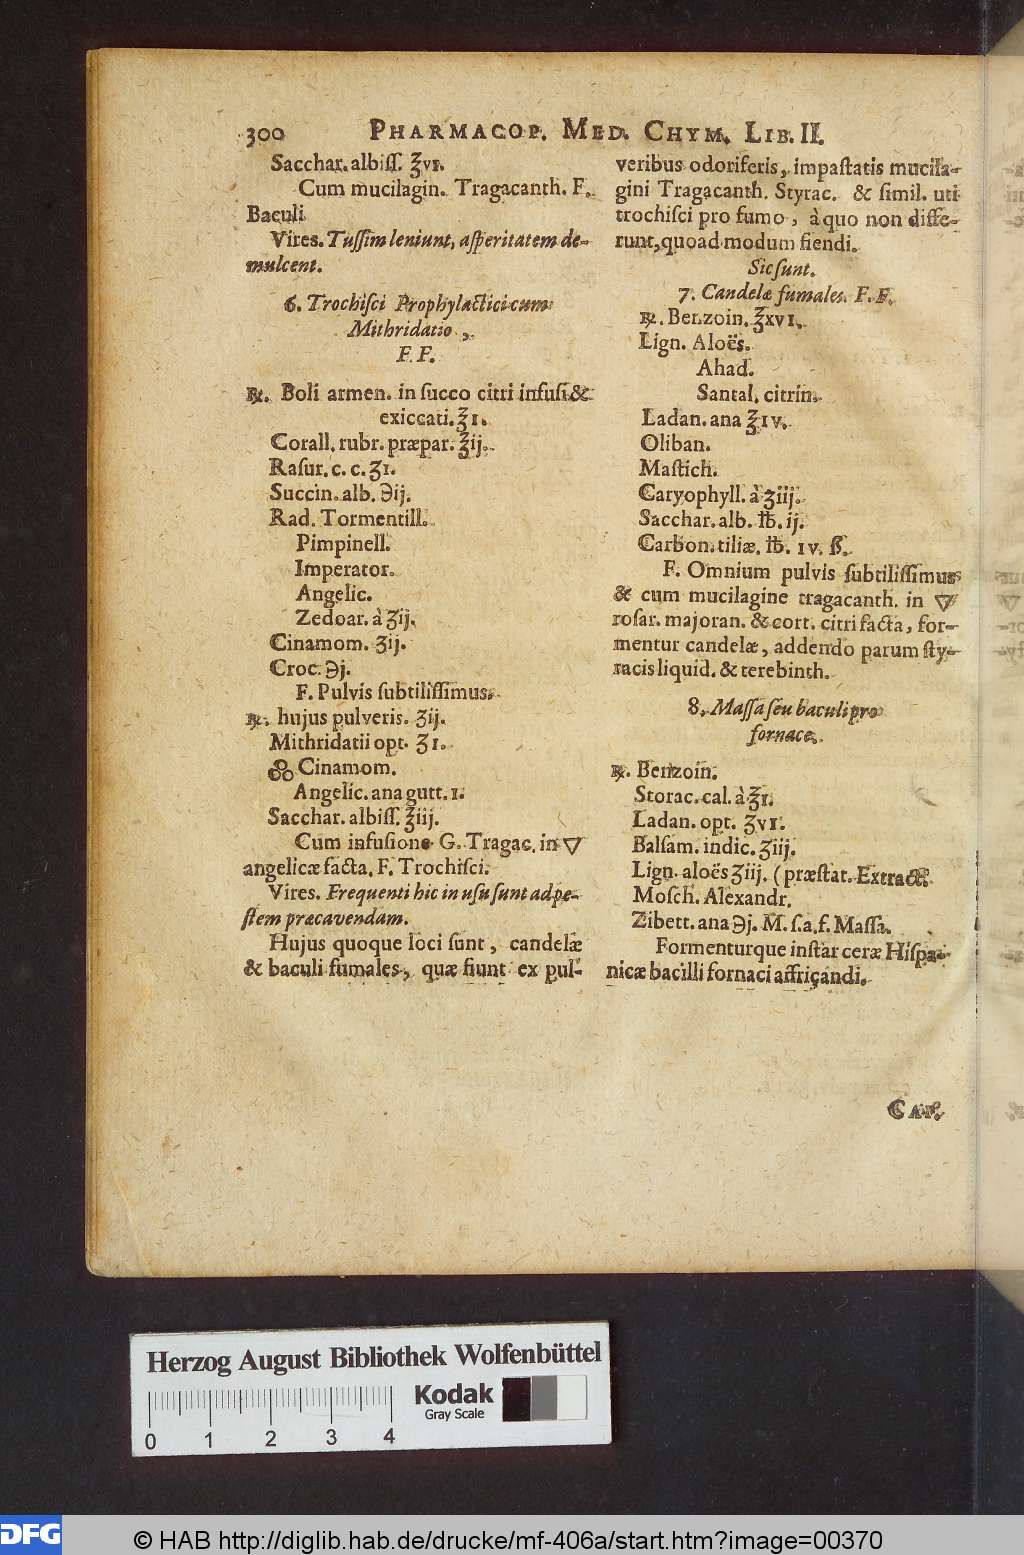 300 PHARMACOP. MED. CHYM. LIB. II.
Sacchar. albiſſ. ℥vı.
Cum mucilagin. Tragacanth. F.
Baculi
Vires. Tuſſim leniunt, aſperitatem de-
mulcent.
6. Trochiſci Prophylactici cum
Mithridatio,
F. F.
℞. Boli armen. in ſucco citri infuſi &
exiccati. ℥ı.
Corall. rubr. præpar. ℥ij.
Raſur. c. c. ʒı.
Succin. alb. ℈ij.
Rad. Tormentill.
Pimpinell.
Imperator.
Angelic.
Zedoar. à ʒij.
Cinamom. ʒij.
Croc. ℈j.
F. Pulvis ſubtiliſſimus.
℞. hujus pulveris. ʒij.
Mithridatii opt. ʒı.
Cinamom.
Angelic. ana gutt. ı.
Sacchar. albiſſ. ℥iij.
Cum infuſione G. Tragac. in 🜄
angelicæ facta. F. Trochiſci.
Vires. Frequenti hic in uſu ſunt ad pe-
ſtem præcavendam.
Hujus quoque loci ſunt, candelæ
& baculi fumales, quæ fiunt ex pul-
veribus odoriferis, impaſtatis mucila-
gini Tragacanth. Styrac. & ſimil. uti
trochiſci pro fumo, à quo non diffe-
runt, quoad modum fiendi.
Sic ſunt.
7. Candelæ fumales. F. F.
℞. Benzoin. ℥xvı.
Lign. Aloës.
Ahad.
Santal. citrin.
Ladan. ana ℥ıv.
Oliban.
Maſtich.
Caryophyll. à ʒiij.
Sacchar. alb. ℔. ij.
Carbon. tiliæ. ℔. ıv. ß.
F. Omnium pulvis ſubtiliſſimus
& cum mucilagine tragacanth. in 🜄
roſar. majoran. & cort. citri facta, for-
mentur candelæ, addendo parum ſty-
racis liquid. & terebinth.
8. Maſſa ſeu baculi pro
fornace.
℞. Benzoin.
Storac. cal. à ℥ı.
Ladan. opt. ʒvı.
Balſam. indic. ʒiij.
Lign. aloës ʒiij. (præſtat. Extract.
Moſch. Alexandr.
Zibett. ana ℈j. M. ſ. a. f. Maſſa.
Formenturque inſtar ceræ Hiſpa-
nicæ bacilli fornaci affriçandi.
CAP.
Herzog August Bibliothek Wolfenbüttel
Kodak
Gray Scale
0 1 2 3 4
DFG
© HAB http://diglib.hab.de/drucke/mf-406a/start.htm?image=00370